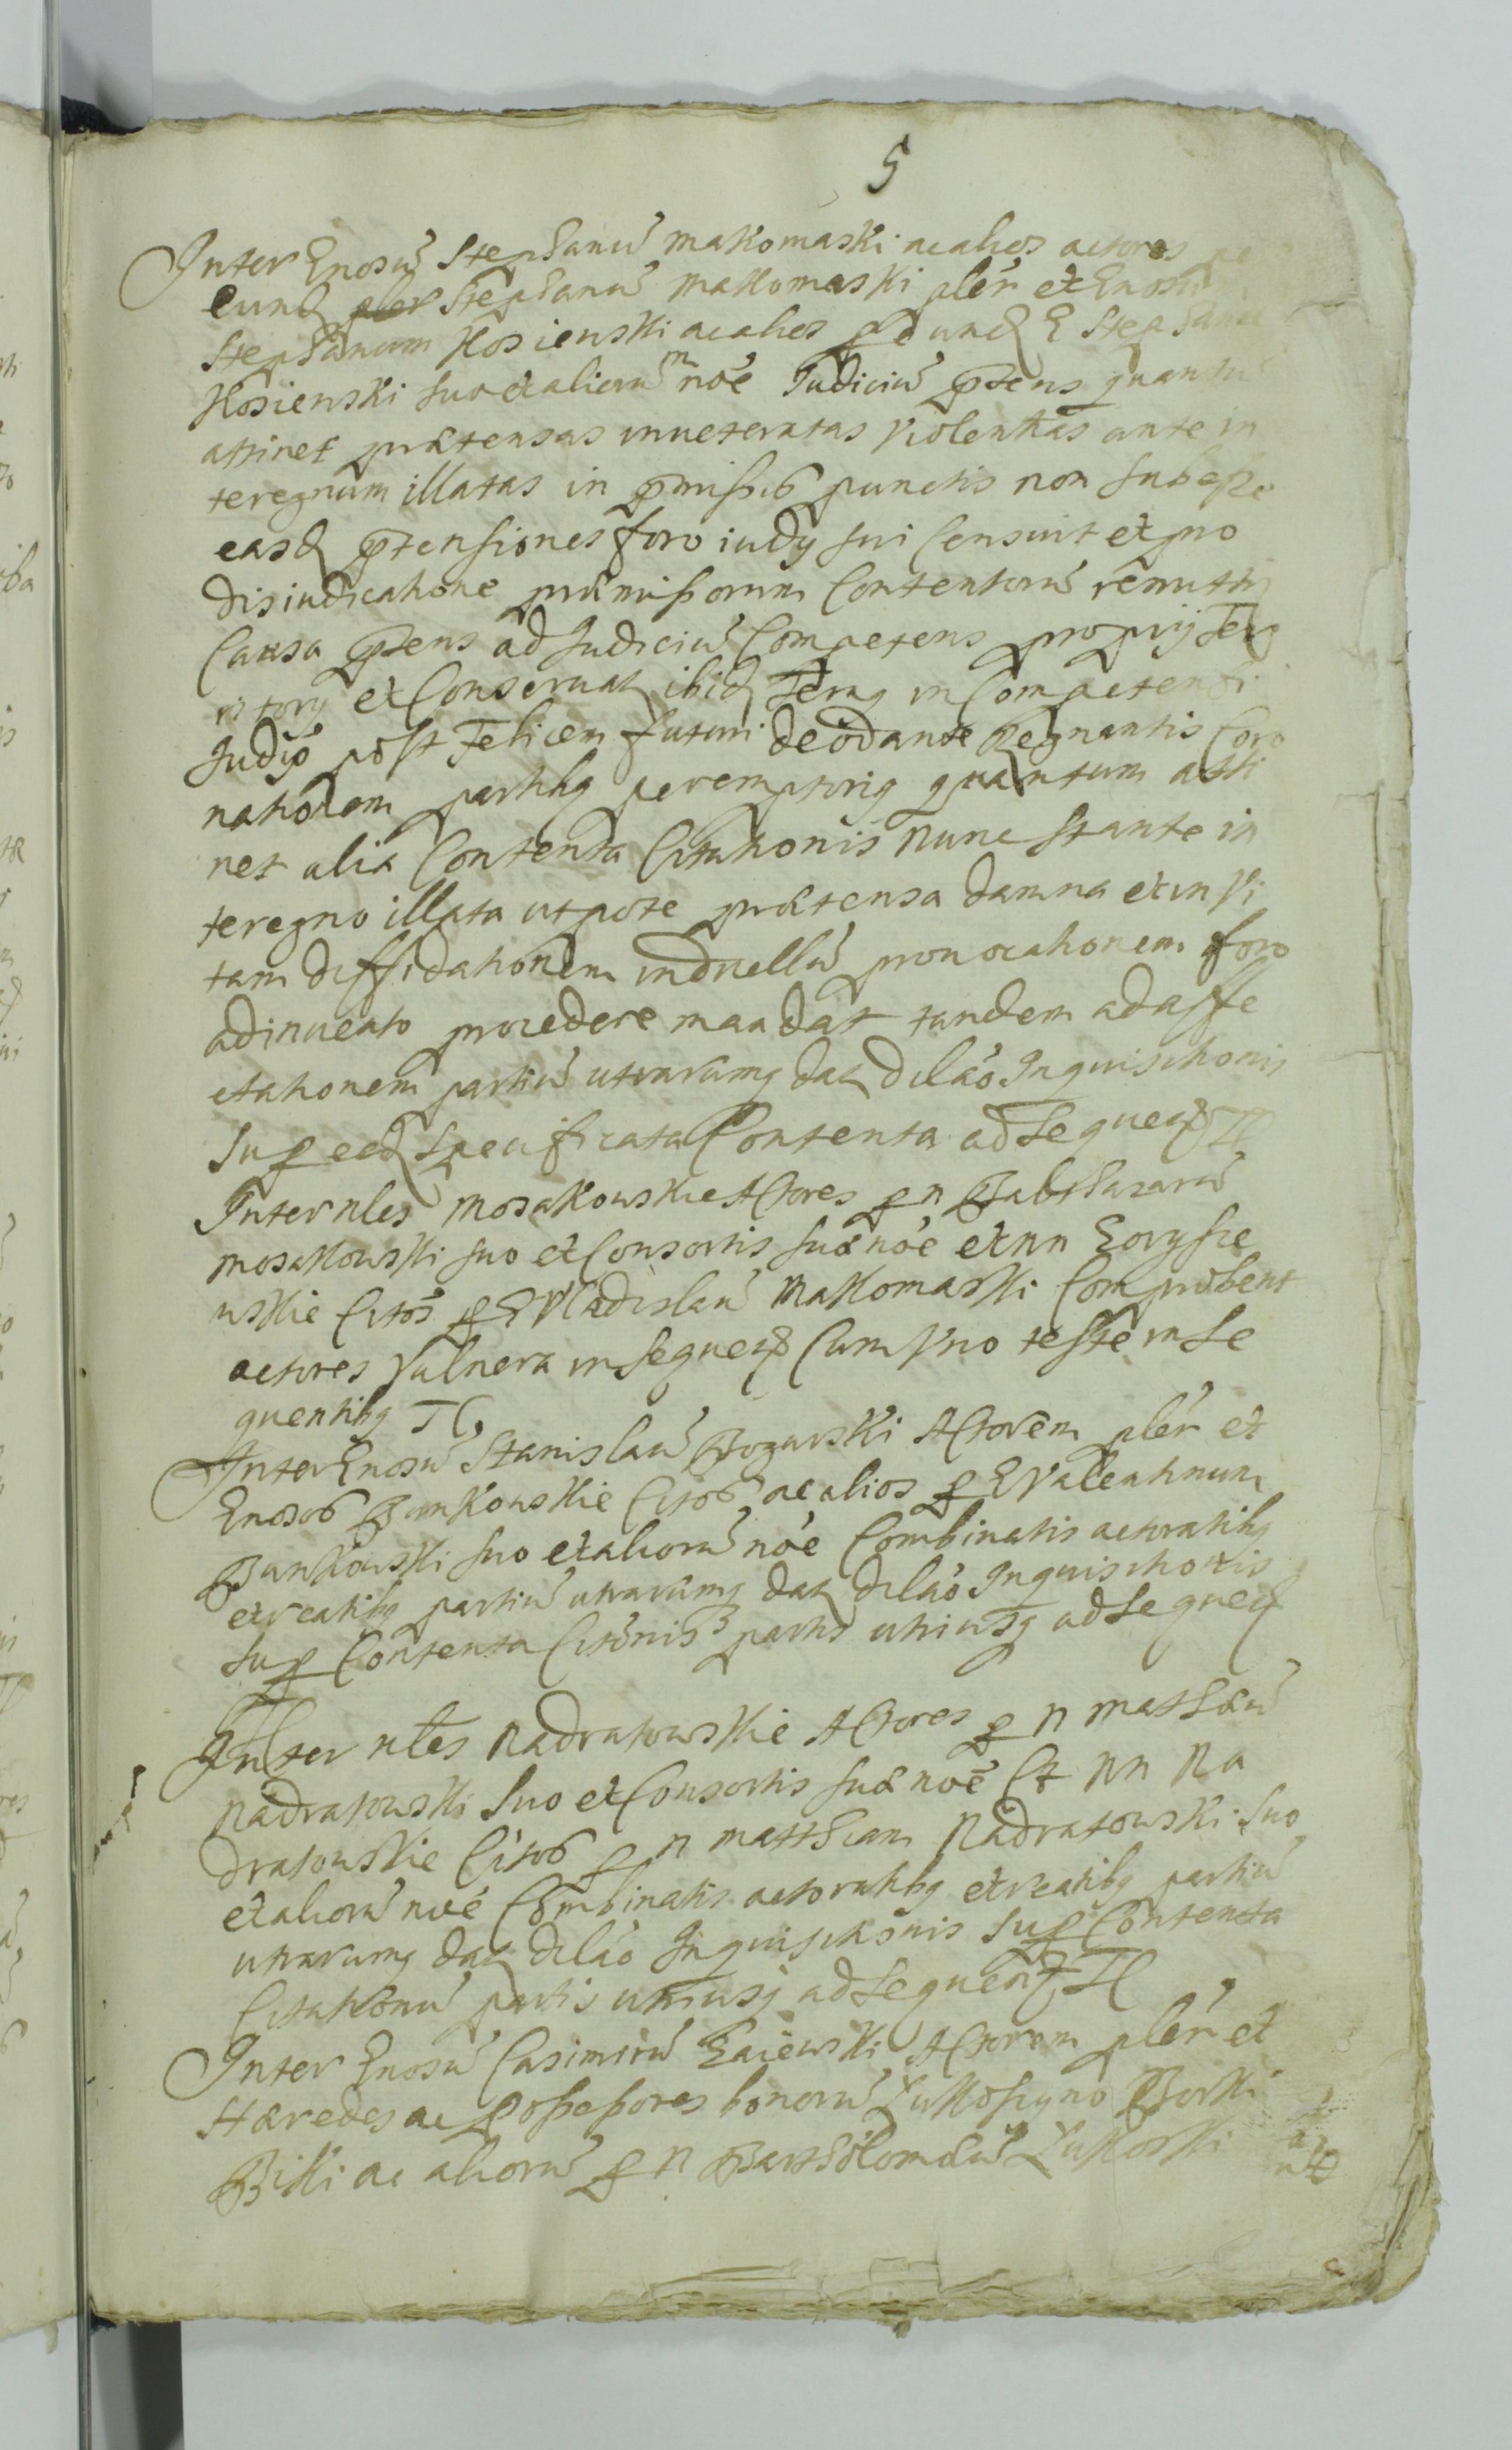 5
Inter Gnosũ Stephanũ Makomaski ac alios actores
eund Stephanũ Makomaski plen et Gnosũ
Stephanum Kosienski ac alios p eund G Stephanũ
Kosienski suo et aliorũ noe Judiciũ pntens quantũ
attinet prætensas inveteratas violentias ante in
teregnum illatas in pmissis punctis non subesse
easd ptensiones foro iudy sui Censuit et pro
disiudicatione præmissorum Contentorũ remittit
Causa pntens ad Judiciũ Competens proprij Ter
ritory et Conservat ibid Termg in Competenti
Judyo post Felicem futuri deo dante Regnantis Coro
nationem partibg peremptorig quantum atti
net alia Contenta Citationis nunc stante in
teregno illata utpote prætensa damna et in vi
tam diffidationem in duellũ provocationem foro
adinvento procedere mandat tandem ad affe
ctationem partiũ utrarumq dat dilao Inquisitionis
Sup ead specificata Contenta ad sequen Tl
Inter nles Mosakowskie Actores p n Balthazarũ
Mosakowski suo et Consortis suæ noe et nn Gorysze
wskie Citos p G Vladislaũ Makomaski Comprobent
actores vulnera in sequen Cum vno teste in se
quentibg Tl
Inter Gnosũ Stanislaũ Bogurski Actorem plen et
Gnosos Bankowskie Citos ac alios p G Valentinum
Bankowski suo et aliorũ noe Combinatis actoratibg
et reatibg partiũ utrarumq dat dilao Inquisitionis
sup Contenta Citonis partis utriusq ad sequen
Tl
Inter nles Nadratowskie Actores p n Mathæũ
Nadratowski suo et Consortis suæ noe et nn Na
dratowskie Citos p n Matthiam Nadratowski suo
et aliorũ noe Combinatis actoratibg et reatibg partiũ
utrarumq dat dilao Inquisitionis sup Contenta
Citationũ partis utriusq ad sequen Tl
Inter Gnosũ Casimirũ Gaiewski Actorem plen et
Hæredes ac possessores bonorũ Zukossyno Borki
Biki ac aliorũ p n Bartholomæũ Zukoski